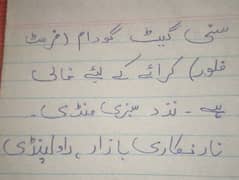 سٹی گیٹ گودام (فرسٹ
فلور) کرائے کے لئے خالی
ہے ۔ نزد سبزی منڈی ۔
نارنکاری بازار، راولپنڈی